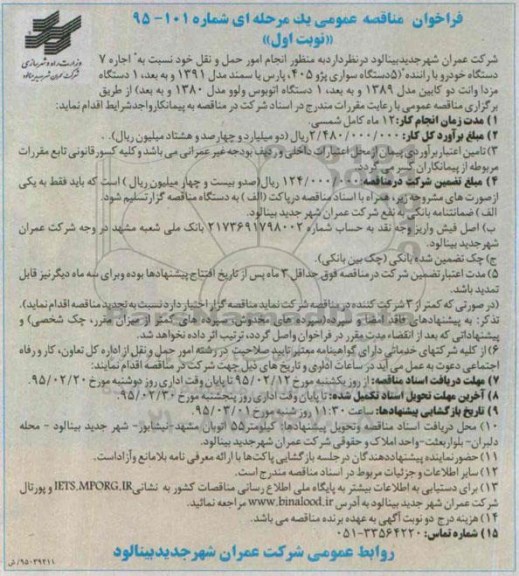 فراخوان مناقصه عمومی یك مرحله ای شماره ۱۰۱- ۹۵
«(نوبت اول)»
وزارت راه و شهرسازی
شرکت عمران شهر جدید بینالود
شرکت عمران شهرجدیدبینالود درنظرداردبه منظور انجام امور حمل و نقل خود نسبت به" اجاره ۷
دستگاه خودرو با راننده"(۵دستگاه سواری پژو ۴۰۵، پارس یا سمند مدل ۱۳۹۱ و به بعد، ۱ دستگاه
مزدا وانت دو کابین مدل ۱۳۸۹ و به بعد، ۱ دستگاه اتوبوس ولوو مدل ۱۳۸۰ و به بعد) از طریق
برگزاری مناقصه عمومی با رعایت مقررات مندرج در اسناد شرکت در مناقصه به پیمانکارواجدشرایط اقدام نماید:
۱) مدت زمان انجام کار: ۱۲ ماه کامل شمسی.
۲) مبلغ برآورد کل کار: ۲/۴۸۰/۰۰۰/۰۰۰ ریال (دو میلیارد و چهارصد و هشتاد میلیون ریال).
۳) تامین اعتبار برآوردی پیمان از محل اعتبارات داخلی و ردیف بودجه غیر عمرانی می باشد و کلیه کسور قانونی تابع مقررات
مربوطه از پیمانکاران کسر می گردد.
۴) مبلغ تضمین شرکت درمناقصه: ۱۲۴/۰۰۰/۰۰۰ ریال(صدو بیست و چهار میلیون ریال ) است که باید فقط به یکی
ازصورت های مشروحه زیر، همراه با اسناد مناقصه درپاکت (الف) به دستگاه مناقصه گزارتسلیم شود.
الف ) ضمانتنامه بانکی به نفع شرکت عمران شهر جدید بینالود.
ب) اصل فیش واریز وجه نقد به حساب شماره ۲۱۷۳۶۹۱۷۹۸۰۰۲ بانک ملی شعبه مشهد در وجه شرکت عمران
شهر جدید بینالود.
ج) چک تضمین شده بانکی (چک بین بانکی).
۵) مدت اعتبار تضمین شرکت در مناقصه فوق حداقل ۳ ماه پس از تاریخ افتتاح پیشنهادها بوده وبرای سه ماه دیگر نیز قابل
تمدید باشد.
(در صورتی که کمتر از ۳ شرکت کننده در مناقصه شرکت نماید مناقصه گزار اختیار دارد نسبت به تجدید مناقصه اقدام نماید).
تذکر: به پیشنهادهای فاقد امضا و سپرده (سپرده های مخدوش، سپرده های کمتر از میزان مقرر، چک شخصی) و
پیشنهاداتی که بعد از انقضاء مدت مقرر در فراخوان واصل گردد، ترتیب اثر داده نخواهد شد.
۶) از کلیه شرکتهای خدماتی دارای گواهینامه معتبر تایید صلاحیت در رشته امور حمل و نقل از اداره کل تعاون، کار و رفاه
اجتماعی دعوت به عمل می آید در ساعات اداری و تاریخ های ذیل جهت شرکت در مناقصه اقدام نمایند:
۷) مهلت دریافت اسناد مناقصه: از روز یکشنبه مورخ ۹۵/۰۲/۱۲ تا پایان وقت اداری روز دوشنبه مورخ ۹۵/۰۲/۲۰.
۸) آخرین مهلت تحویل اسناد تکمیل شده: تا پایان وقت اداری روز پنجشنبه مورخ ۹۵/۰۲/۳۰.
۹) تاریخ بازگشایی پیشنهادها: ساعت ۱۱:۳۰ روز شنبه مورخ ۹۵/۰۳/۰۱.
۱۰) محل دریافت اسناد مناقصه وتحویل پیشنهادها: کیلومتر۵۵ اتوبان مشهد-نیشابور- شهر جدید بینالود - محله
دلبران- بلوار بعثت- واحد املاک و حقوقی شرکت عمران شهر جدید بینالود.
۱۱) حضور نماینده پیشنهاددهندگان درجلسه بازگشایی پاکت‌ها با ارائه معرفی نامه بلامانع وآزاداست.
۱۲) سایر اطلاعات و جزئیات مربوط در اسناد مناقصه مندرج است.
۱۳) برای دستیابی به اطلاعات بیشتر به پایگاه ملی اطلاع رسانی مناقصات کشور به نشانی IETS.MPORG.IR و پورتال
شرکت عمران شهر جدید بینالود به آدرس www.binalood.ir مراجعه نمائید.
۱۴) هزینه درج دو نوبت آگهی به عهده برنده مناقصه می باشد.
۱۵) شماره تماس: ۳۳۵۶۴۲۲۰-۰۵۱
روابط عمومی شرکت عمران شهرجدیدبینالود
۹۵۰۲۹۲۱۱/ش